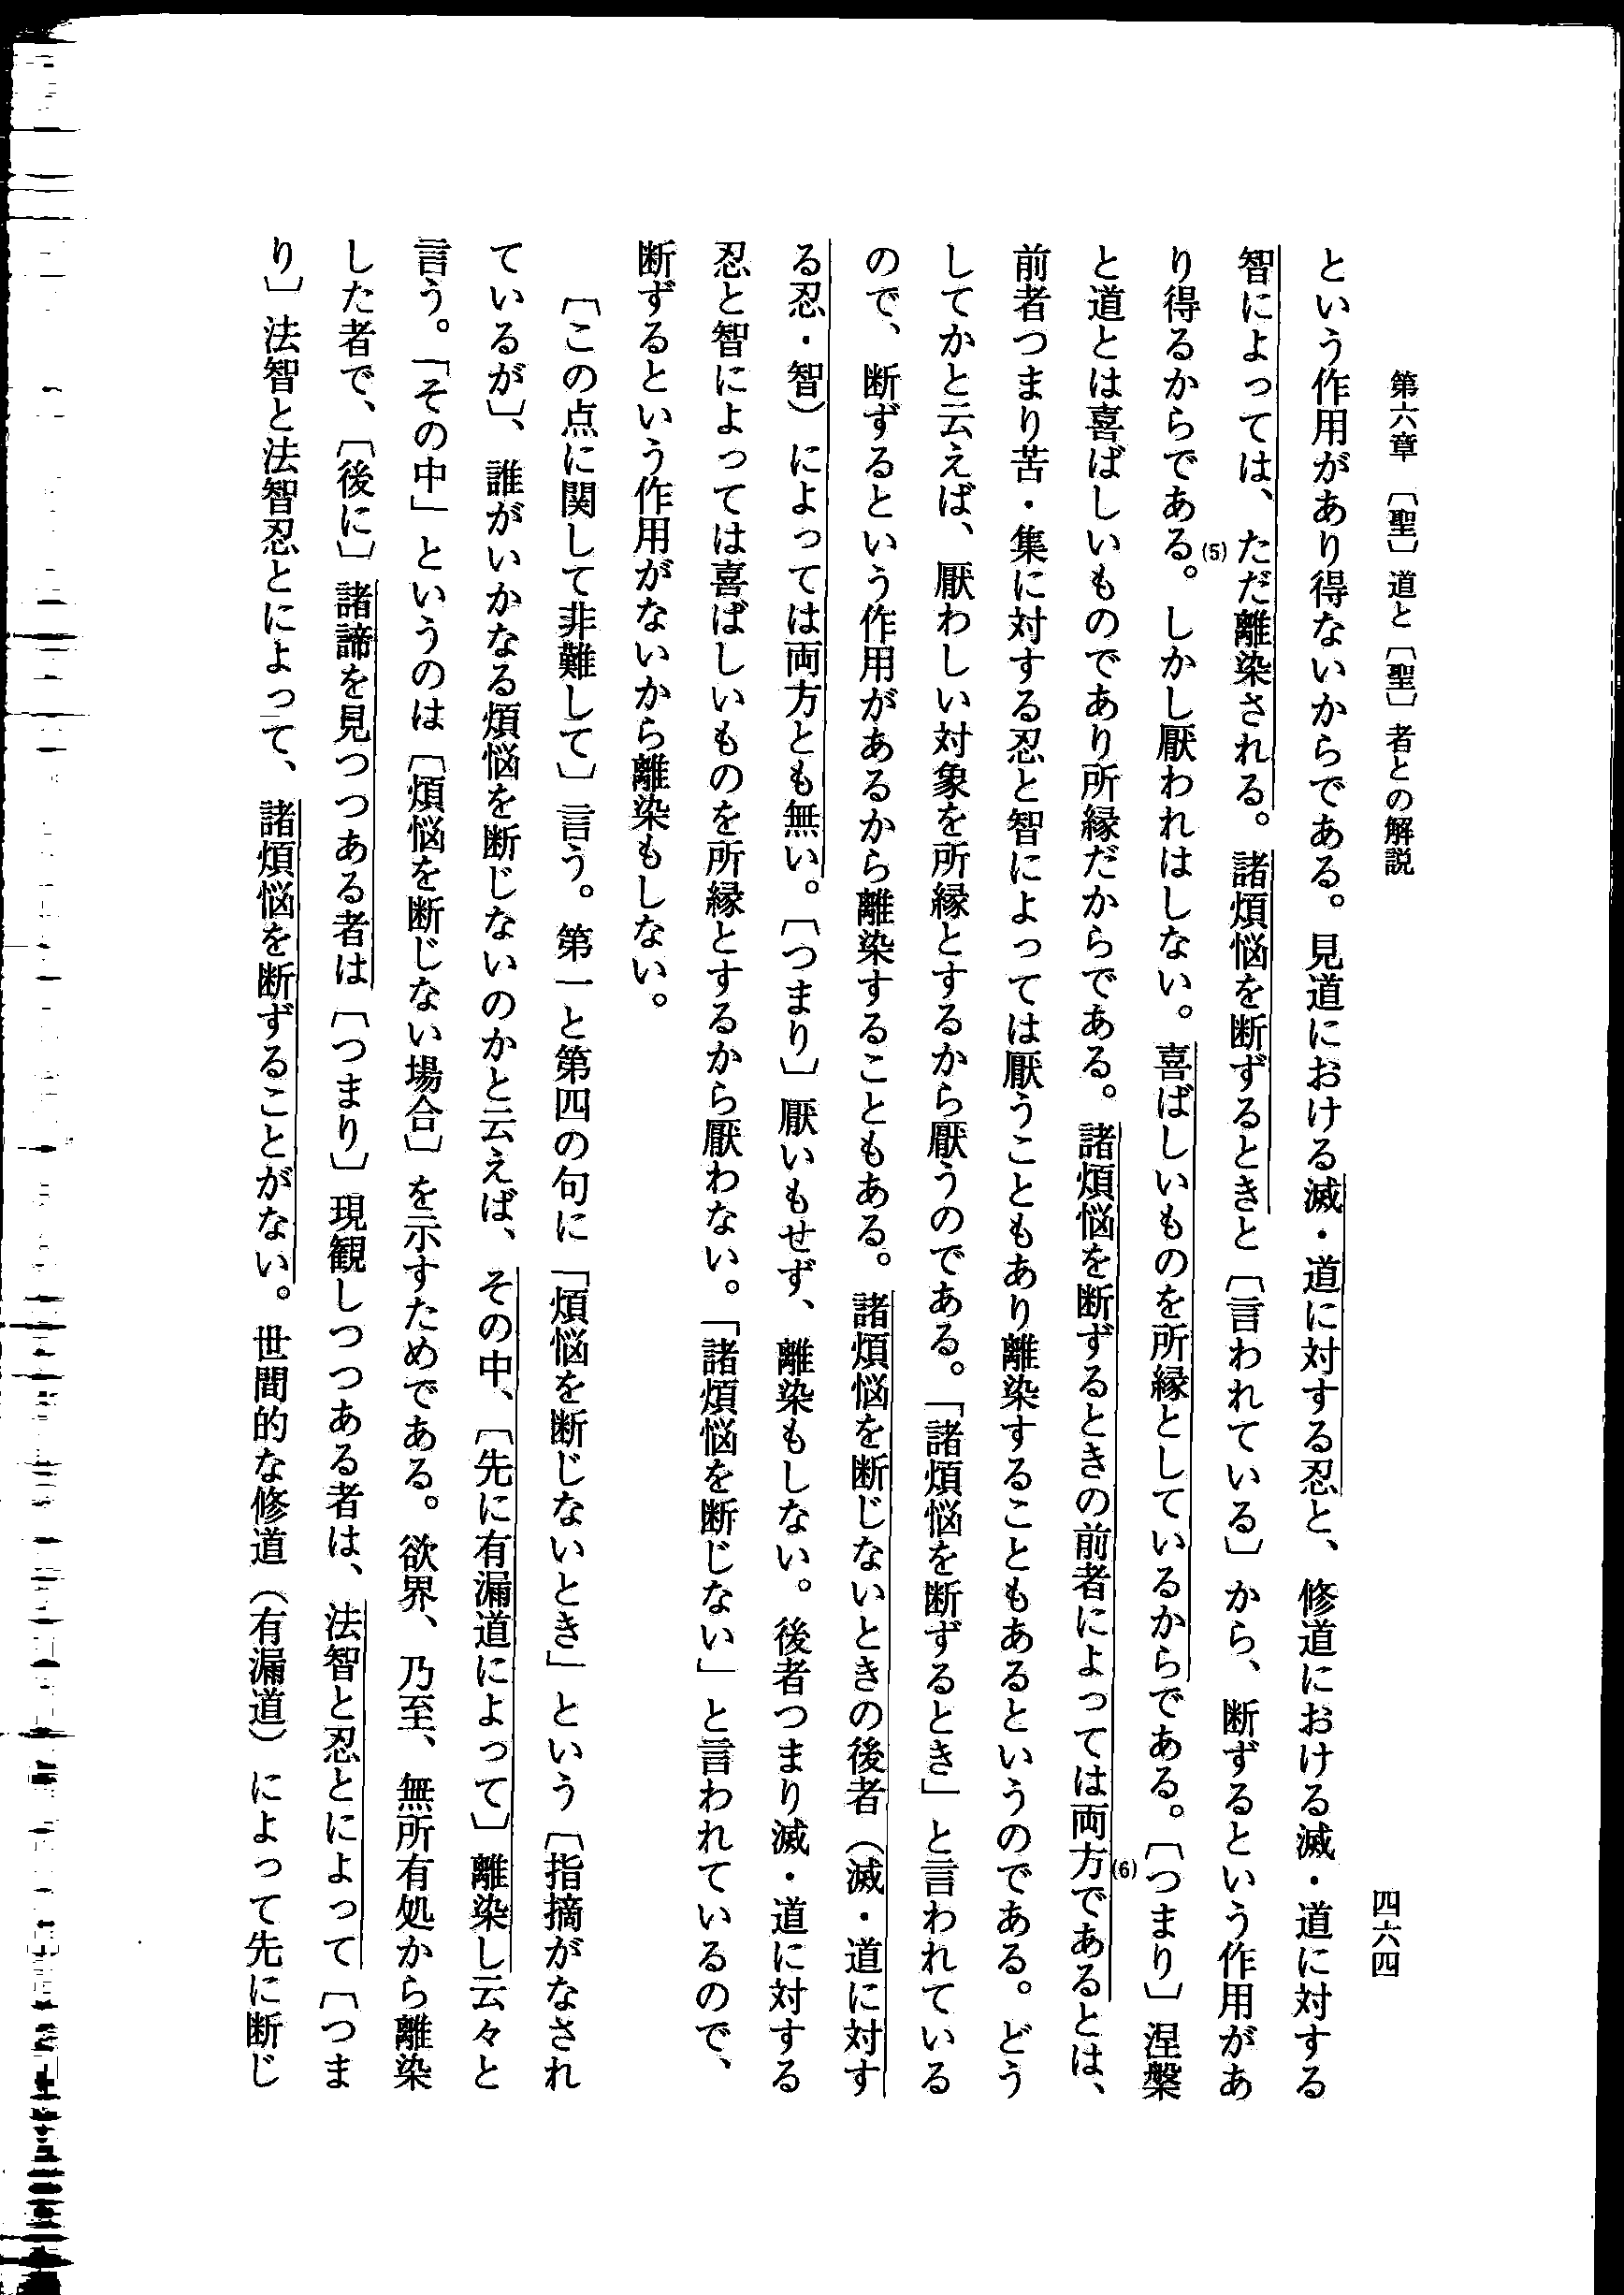 第六章 〔聖〕道と〔聖〕者との解説
四六四
という作用があり得ないからである。見道における滅・道に対する忍と、修道における滅・道に対する
智によっては、ただ離染される。諸煩悩を断ずるときと〔言われている〕から、断ずるという作用があ
り得るからである。(5)しかし厭われはしない。喜ばしいものを所縁としているからである。〔つまり〕涅槃
と道とは喜ばしいものであり所縁だからである。諸煩悩を断ずるときの前者によっては両方である(6)とは、
前者つまり苦・集に対する忍と智によっては厭うこともあり離染することもあるというのである。どう
してかと云えば、厭わしい対象を所縁とするから厭うのである。「諸煩悩を断ずるとき」と言われている
ので、断ずるという作用があるから離染することもある。諸煩悩を断じないときの後者（滅・道に対す
る忍・智）によっては両方とも無い。〔つまり〕厭いもせず、離染もしない。後者つまり滅・道に対する
忍と智によっては喜ばしいものを所縁とするから厭わない。「諸煩悩を断じない」と言われているので、
断ずるという作用がないから離染もしない。
〔この点に関して非難して〕言う。第一と第四の句に「煩悩を断じないとき」という〔指摘がなされ
ているが〕、誰がいかなる煩悩を断じないのかと云えば、その中、〔先に有漏道によって〕離染し云々と
言う。「その中」というのは〔煩悩を断じない場合〕を示すためである。欲界、乃至、無所有処から離染
した者で、〔後に〕諸諦を見つつある者は〔つまり〕現観しつつある者は、法智と忍とによって〔つま
り〕法智と法智忍とによって、諸煩悩を断ずることがない。世間的な修道（有漏道）によって先に断じ